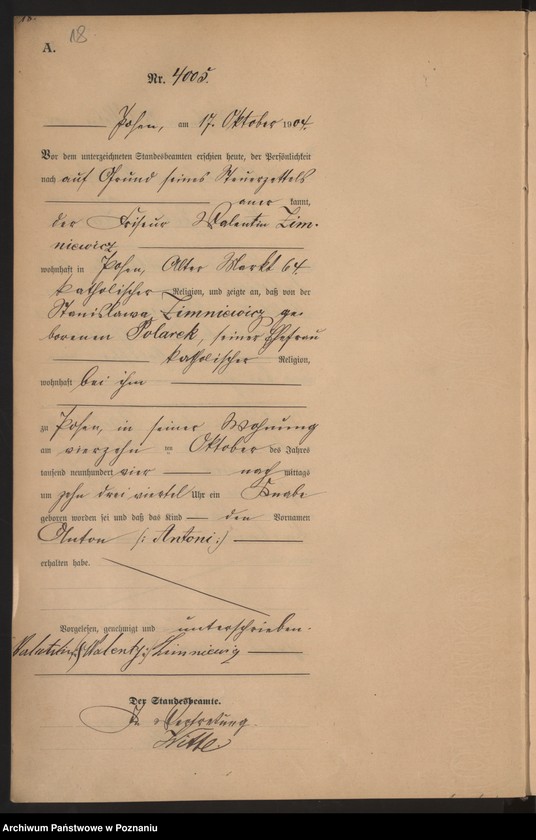 18.
A. 18
Nr. 4005.
Posen, am 17. Oktober 1904.
Vor dem unterzeichneten Standesbeamten erschien heute, der Persönlichkeit
nach auf Grund seines Steuerzettels
aner kannt,
der Friseur Valentin Zim-
niewicz
wohnhaft in Posen, Alter Markt 64.
katholischer Religion, und zeigte an, daß von der
Stanislawa Zimniewicz ge-
borenen Polarek, seiner Ehefrau
katholischer Religion,
wohnhaft bei ihm
zu Posen, in seiner Wohnung
am vierzehn ten Oktober des Jahres
tausend neunhundert vier nach mittags
um zehn drei viertel Uhr ein Knabe
geboren worden sei und daß das Kind den Vornamen
Anton (: Antoni :)
erhalten habe.
Vorgelesen, genehmigt und unterschrieben.
Der Standesbeamte.
In Vertretung.
Witte.
Archiwum Państwowe w Poznaniu